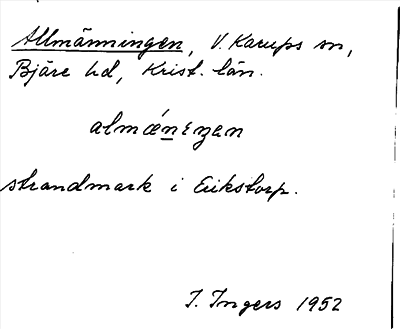 Allmänningen, V. Karups sn,
Bjäre hd, Krist. län.
almǽnıŋen
strandmark i Erikstorp.
I. Ingers 1952